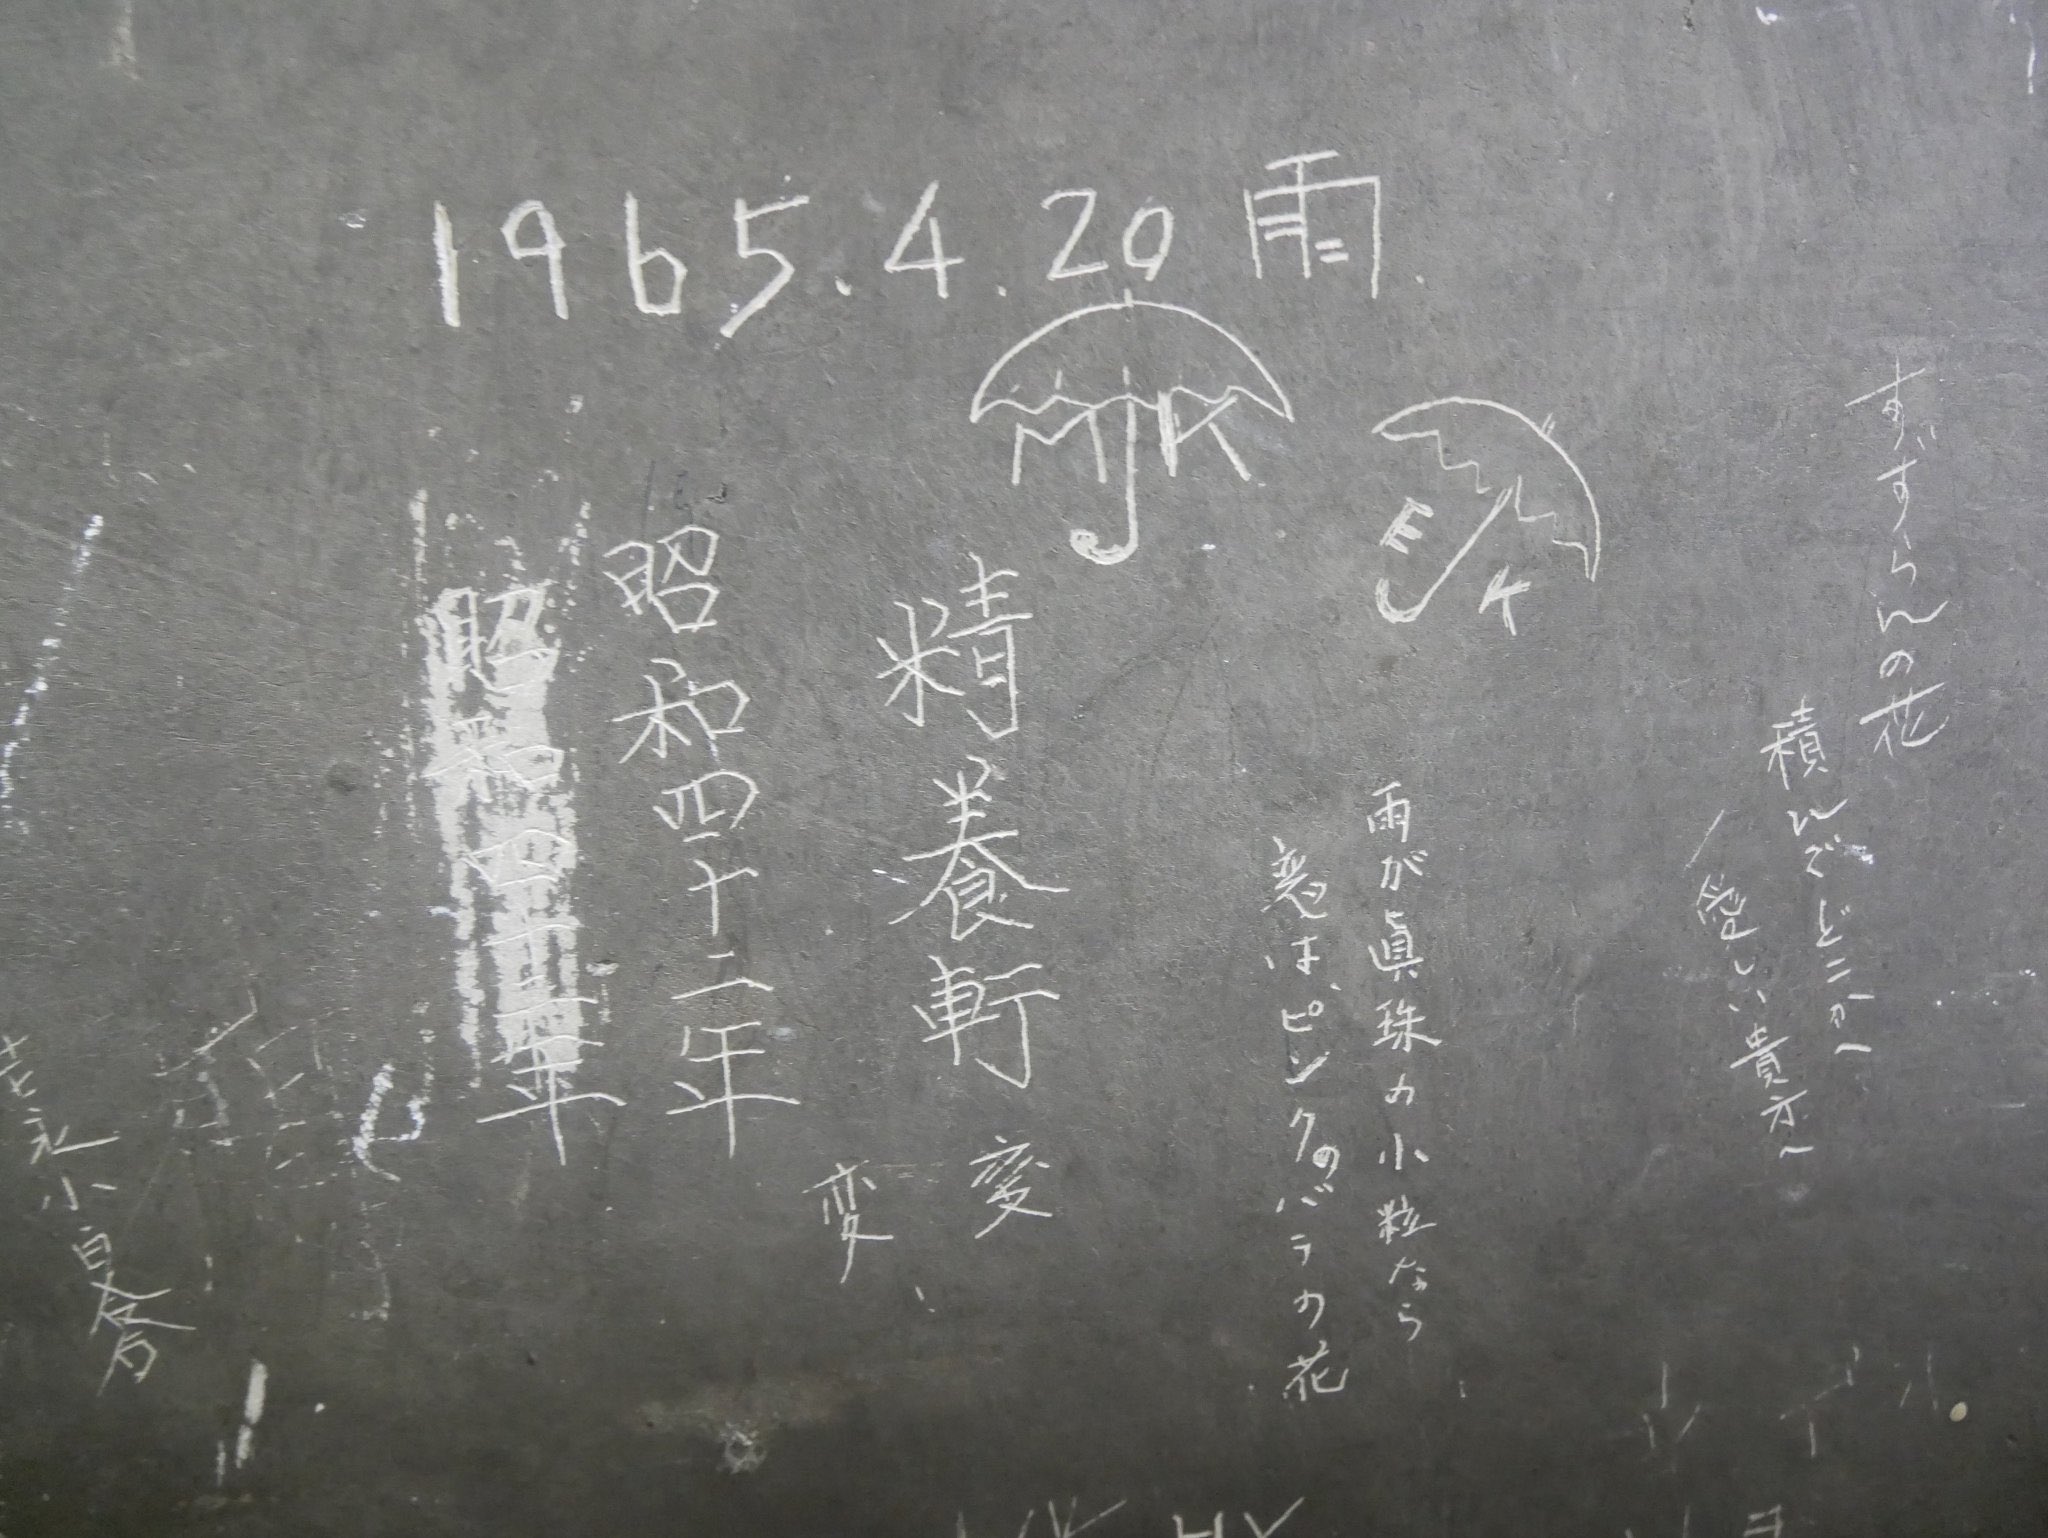 1965.4.20 雨
M K
E K
すずらんの花
積んでどこかへ
愛しい貴方へ
雨が眞珠の小粒なら
恋は、ピンクのバラの花
精養軒
変
変
昭和四十二年
昭和四十三年